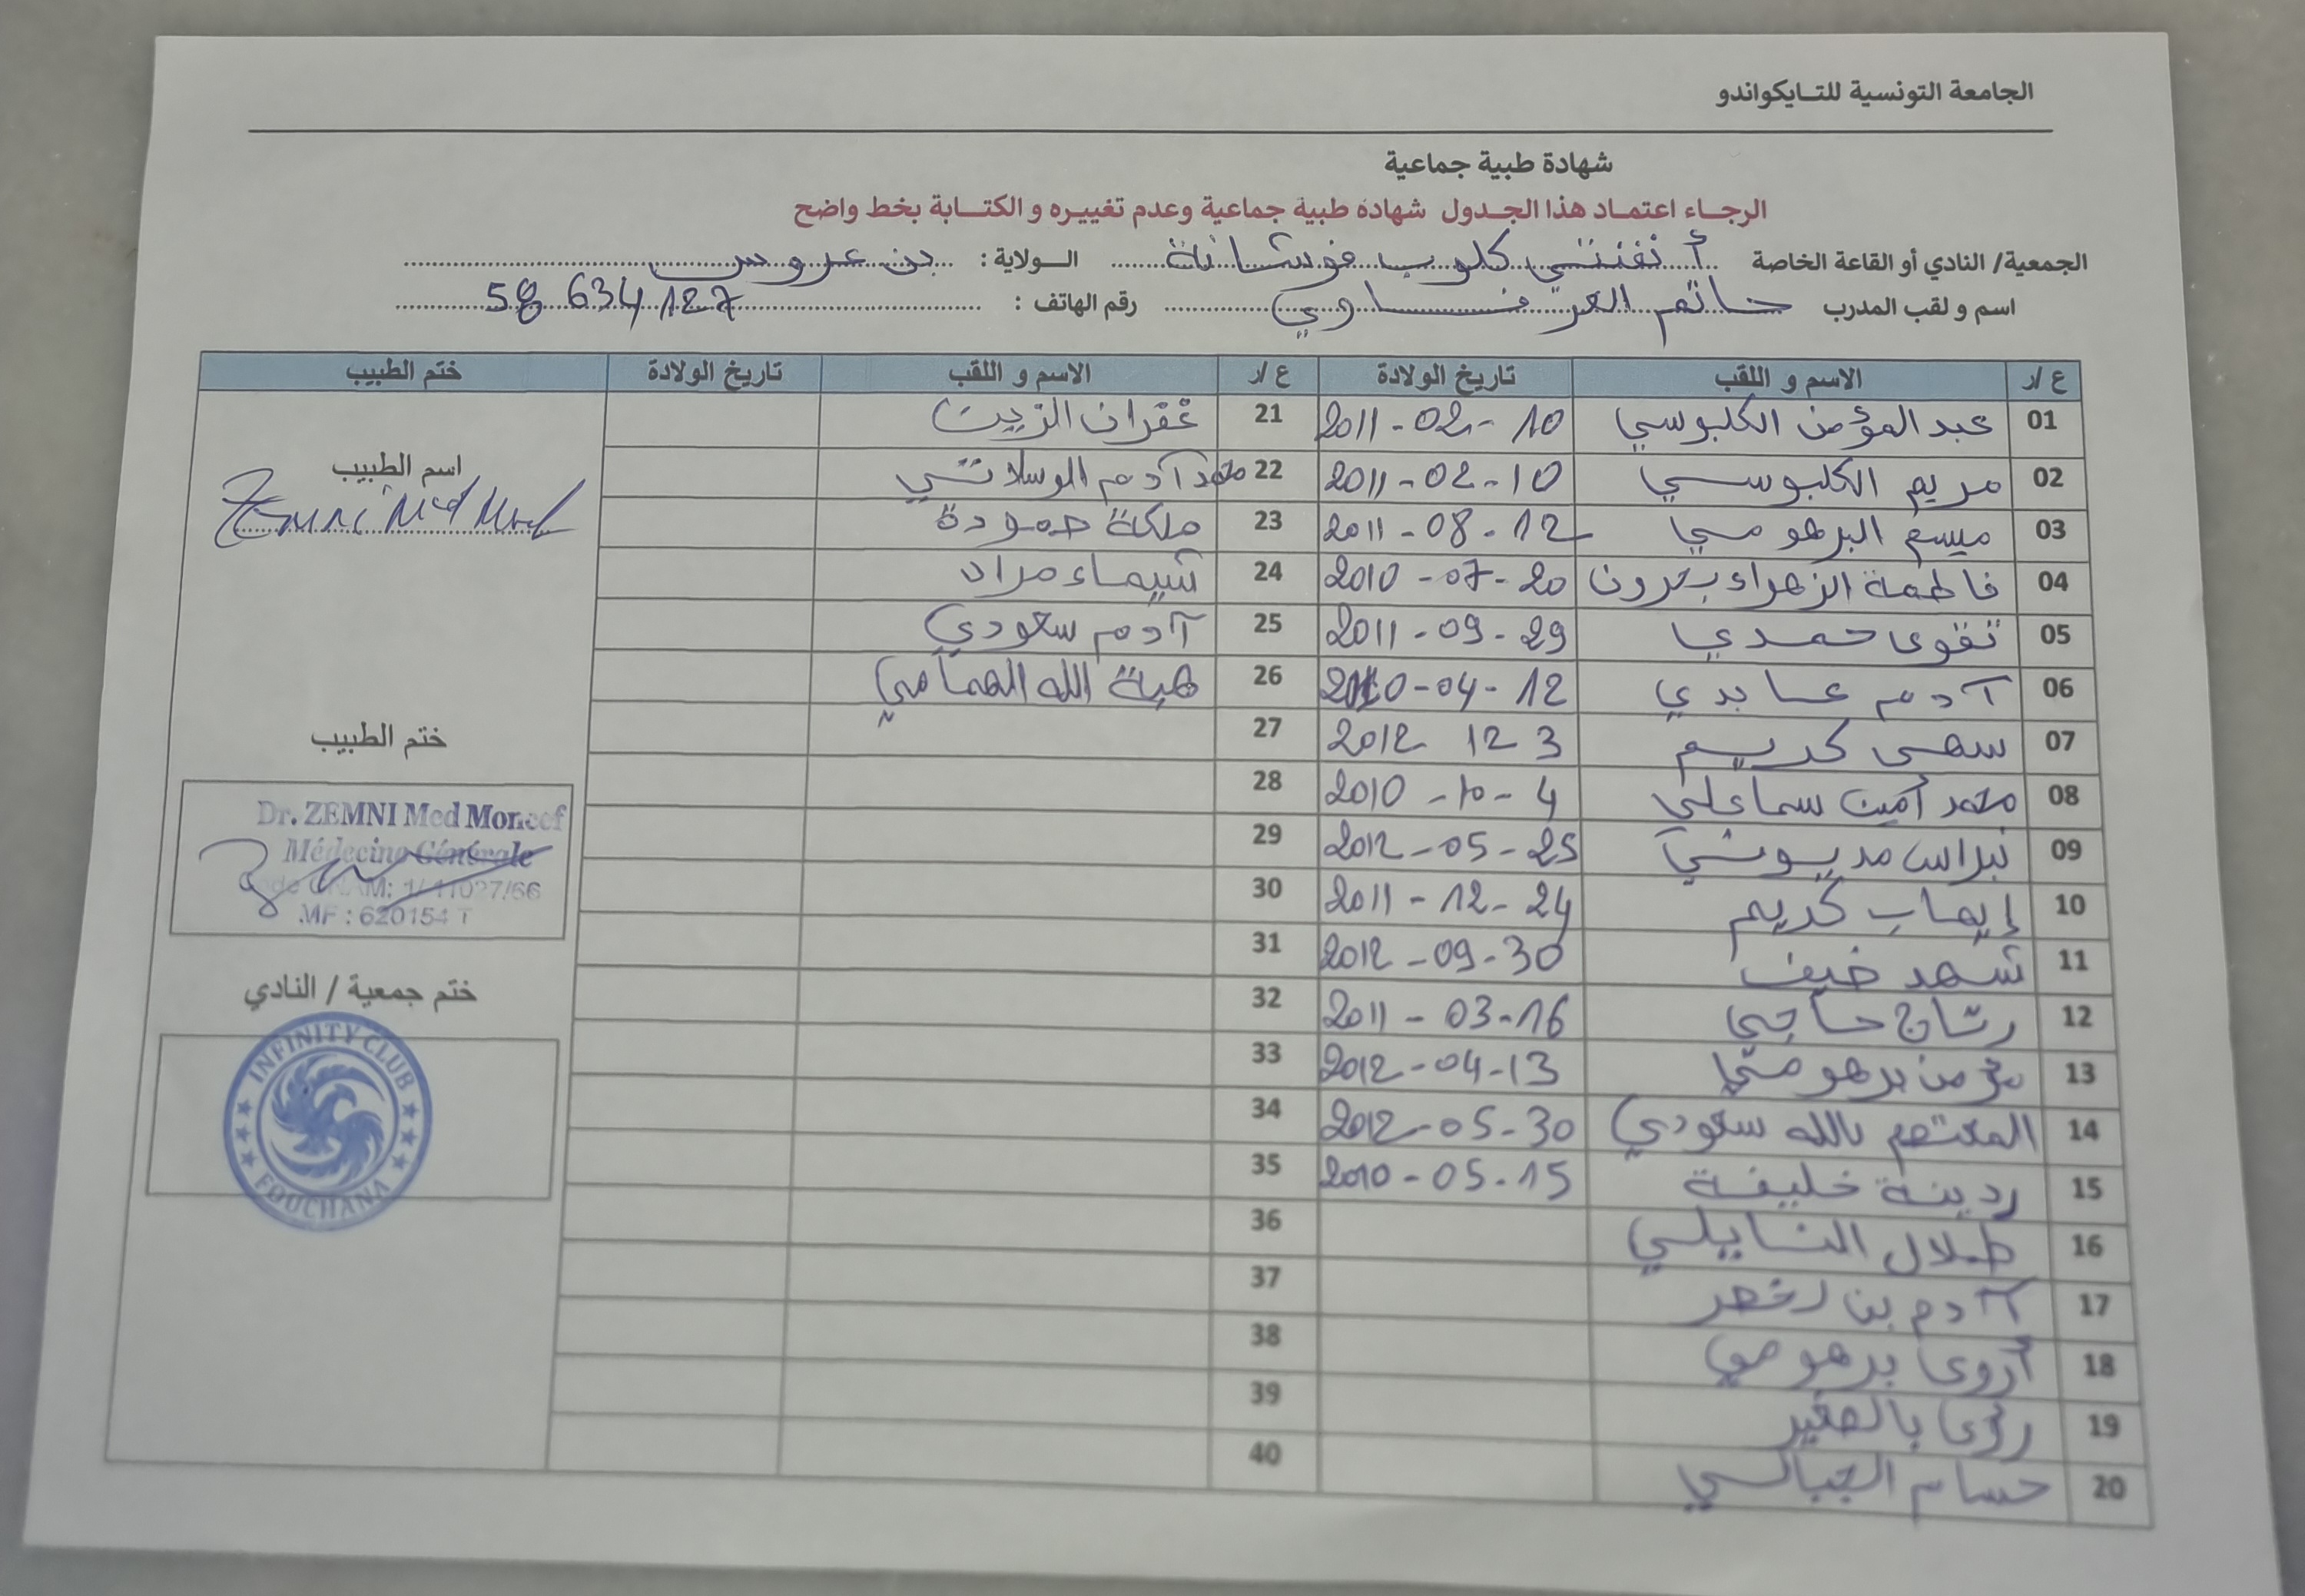 الجامعة التونسية للتايكواندو
شهادة طبية جماعية
الرجاء اعتماد هذا الجدول شهادة طبية جماعية وعدم تغييره و الكتابة بخط واضح
الجمعية/ النادي أو القاعة الخاصة أنفنتي كلوب فوشانة الولاية : بن عروس
اسم و لقب المدرب حاتم رقم الهاتف : 58 634 127
ع /ر الاسم و اللقب تاريخ الولادة ع /ر الاسم و اللقب تاريخ الولادة ختم الطبيب
01 عبد المؤمن الكلبوسي 2011-02-10
02 مريم الكلبوسي 2011-02-10
03 ميسم البرهومي 2011-08-12
04 فاطمة الزهراء 2010-07-20
05 تقوى حمدي 2011-09-29
06 آدم عابدي 2010-04-12
07 سهى كريم 2012 12 3
08 محمد أمين سماعلي 2010-10-4
09 نبراس مديوني 2012-05-25
10 إيهاب كريم 2011-12-24
11 شهد ضيف 2012-09-30
12 حاجي 2011-03-16
13 مؤمن برهومي 2012-04-13
14 المعتصم بالله سعودي 2012-05-30
15 ردينة خليفة 2010-05-15
16 طلال النايلي
17 آدم بن لخضر
18 أروى برهومي
19 رؤى بالصغير
20 حسام الجبالي
21 غفران الزين
22 محمد آدم الوسلاتي
23 ملكة حمودة
24 شيماء مراد
25 آدم سعودي
26 هبة الله الهمامي
27
28
29
30
31
32
33
34
35
36
37
38
39
40
اسم الطبيب
Zemni Med
ختم الطبيب
Dr. ZEMNI Med Moncef
Médecine Générale
Code CNAM: 1/11027/66
MF : 620154 T
ختم جمعية / النادي
INFINITY CLUB
FOUCHANA